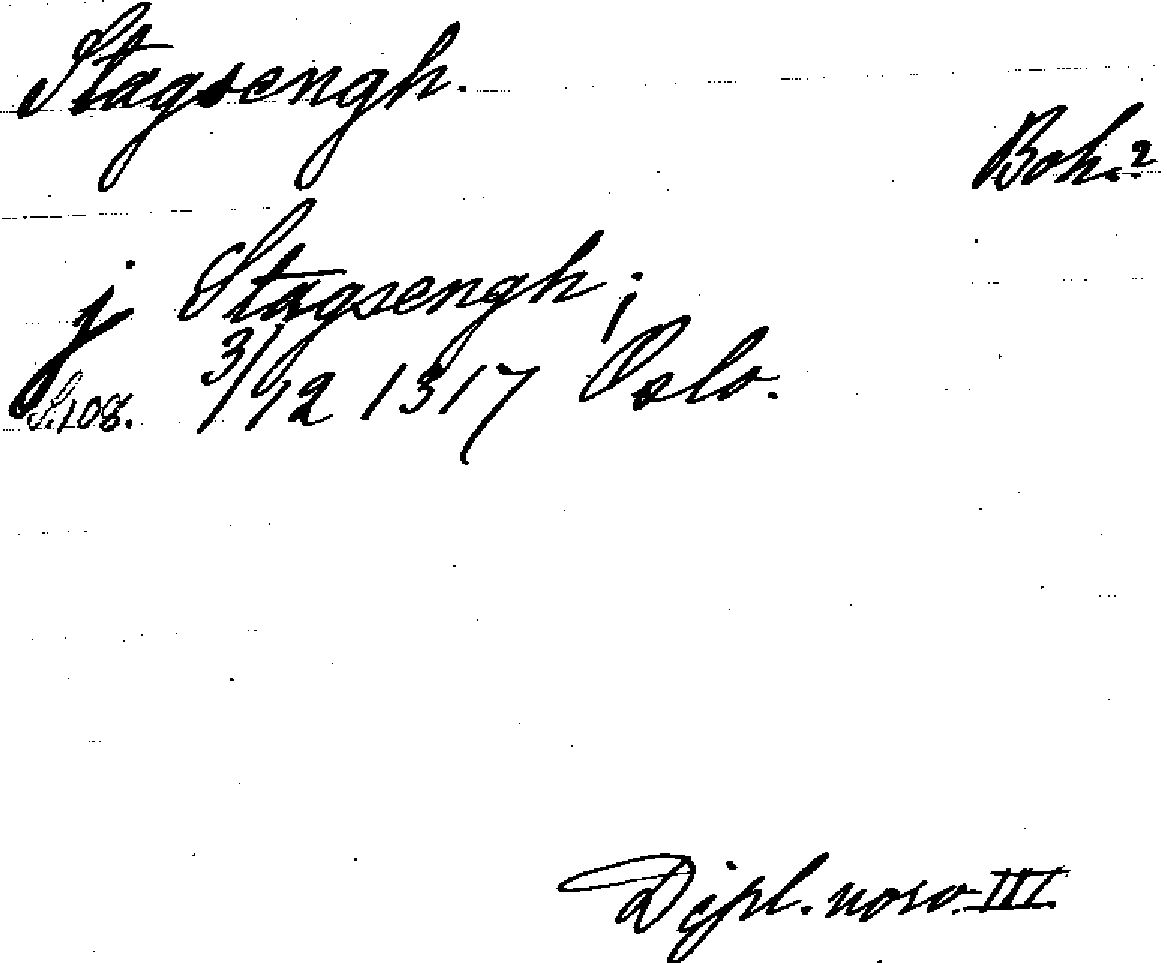 Stagsengh.
Boh.?
j Stagsengh;
S. 108. 3/12 1317 Oslo.
Dipl. norv. III.